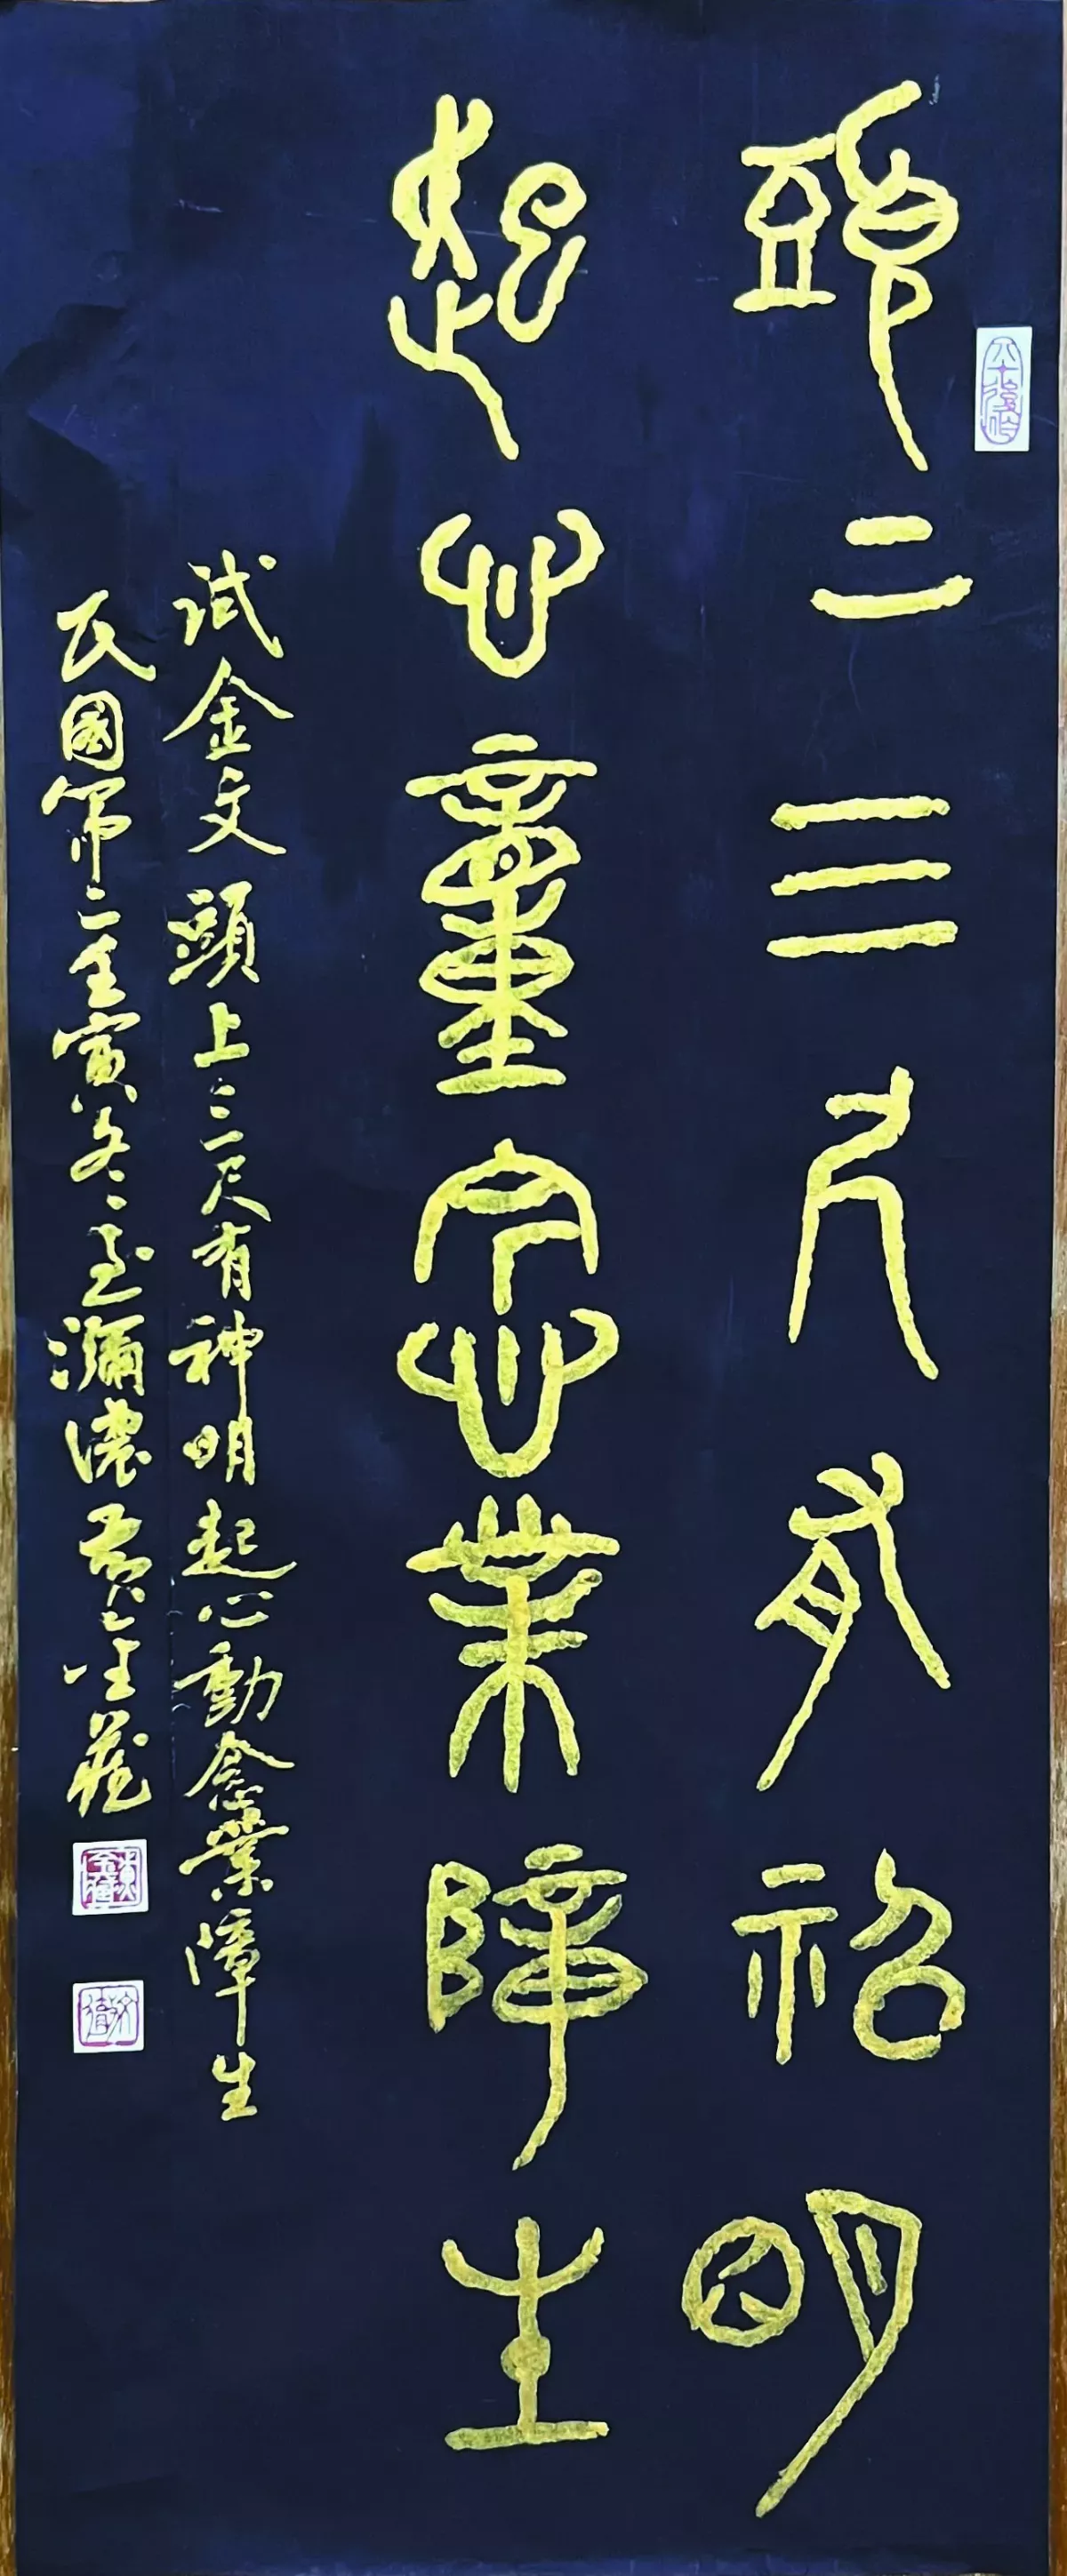 八十後作
頭上三尺有神明
起心動念業障生
試金文頭上三尺有神明起心動念業障生
民國壬寅冬至瀰濃黃